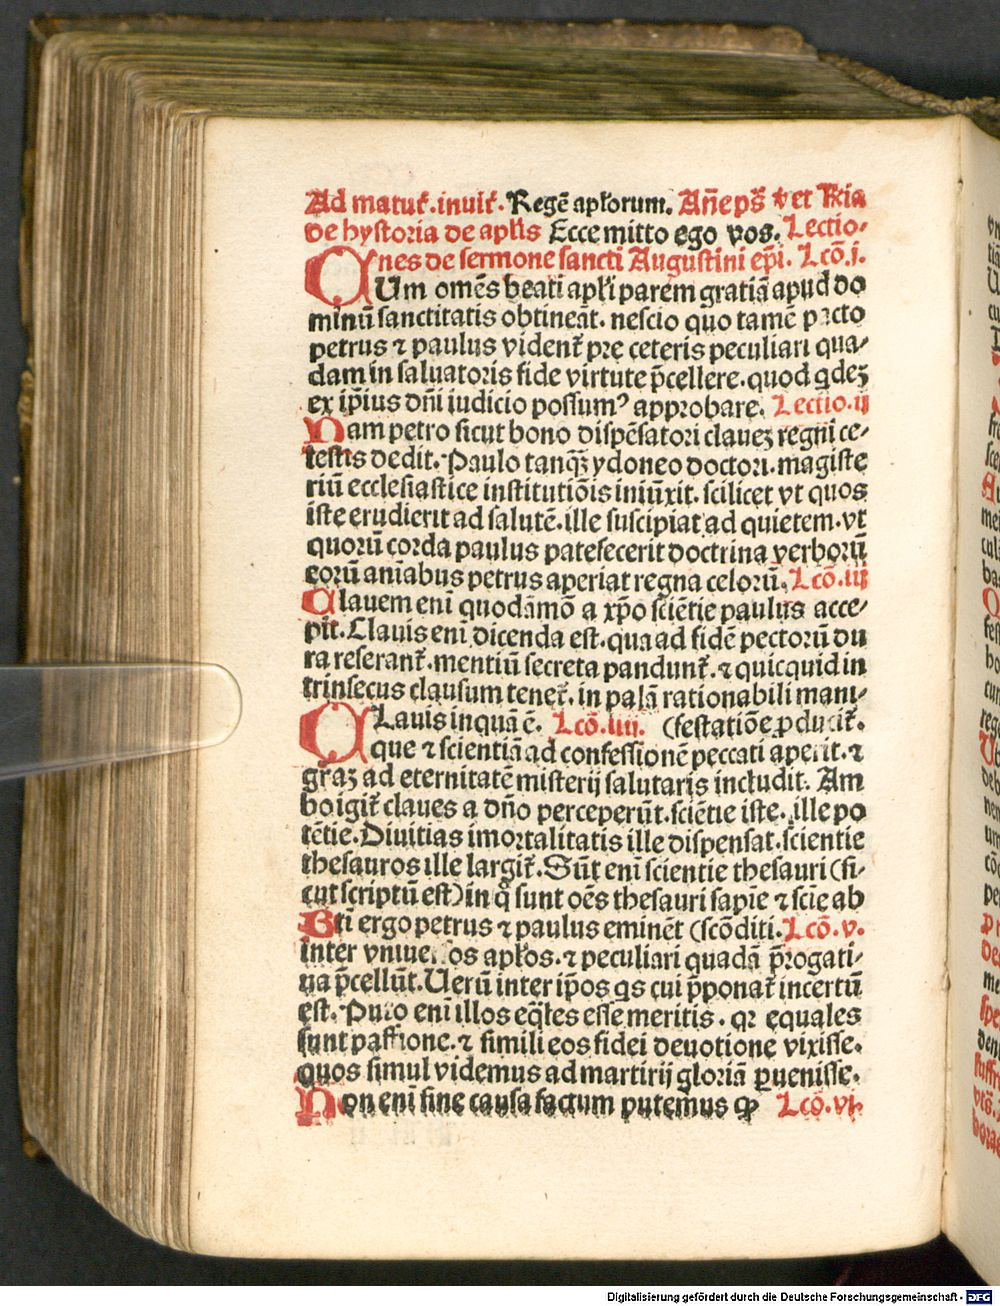 Ad matut᷑. inuit᷑. Regē apl'orum. An̄e ps̄ et
de hystoria de apl'is Ecce mitto ego vos. Lectio⸗
nes de sermone sancti Augustini ep̄i. Lcō. i.
CUm omēs beati apl'i parem gratiā apud do
minū sanctitatis obtineāt. nescio quo tamē pacto
petrus ⁊ paulus vident᷑ pre ceteris peculiari qua⸗
dam in saluatoris fide virtute p̄cellere. quod qdeꝫ
ex ip̄ius dn̄i iudicio possumꝰ approbare. Lectio. ij
Nam petro sicut bono dispēsatori claueꝫ regni ce⸗
lestis dedit. Paulo tanqꝫ ydoneo doctori. magiste
riū ecclesiastice institutiōis iniūxit. scilicet vt quos
iste erudierit ad salutē. ille suscipiat ad quietem. vt
quorū corda paulus patefecerit doctrina verborū
eorū aniabus petrus aperiat regna celorū. Lcō. iij
Clauem eni quodāmō a xp̄o sciētie paulus acce⸗
pit. Clauis eni dicenda est. qua ad fidē pectorū du
ra reserant᷑. mentiū secreta pandunt᷑. ⁊ quicquid in
trinsecus clausum tenet᷑. in palā rationabili mani⸗
CLauis inquā ē. Lcō. iiij. (festatiōe ꝓducit᷑.
que ⁊ scientiā ad confessionē peccati aperit. ⁊
graꝫ ad eternitatē misterij salutaris includit. Am
bo igit᷑ claues a dn̄o perceperūt. sciētie iste. ille po
tētie. Diuitias imortalitatis ille dispensat. scientie
thesauros ille largit᷑. Sūt eni scientie thesauri (si⸗
cut scriptū est) in q̊ sunt oēs thesauri sapie ⁊ scie ab
Bti ergo petrus ⁊ paulus eminēt (scōditi. Lcō. v.
inter vniuersos apl'os. ⁊ peculiari quadā p̄rogati⸗
ua p̄cellūt. Uerū inter ip̄os qs cui p̄ponat᷑ incertū
est. Puto eni illos eq̄les esse meritis. qꝛ equales
sunt passione. ⁊ simili eos fidei deuotione vixisse.
quos simul videmus ad martirij gloriā ꝑuenisse.
Non eni sine causa factum putemus ꝙ Lcō. vi.
Digitalisierung gefördert durch die Deutsche Forschungsgemeinschaft - DFG